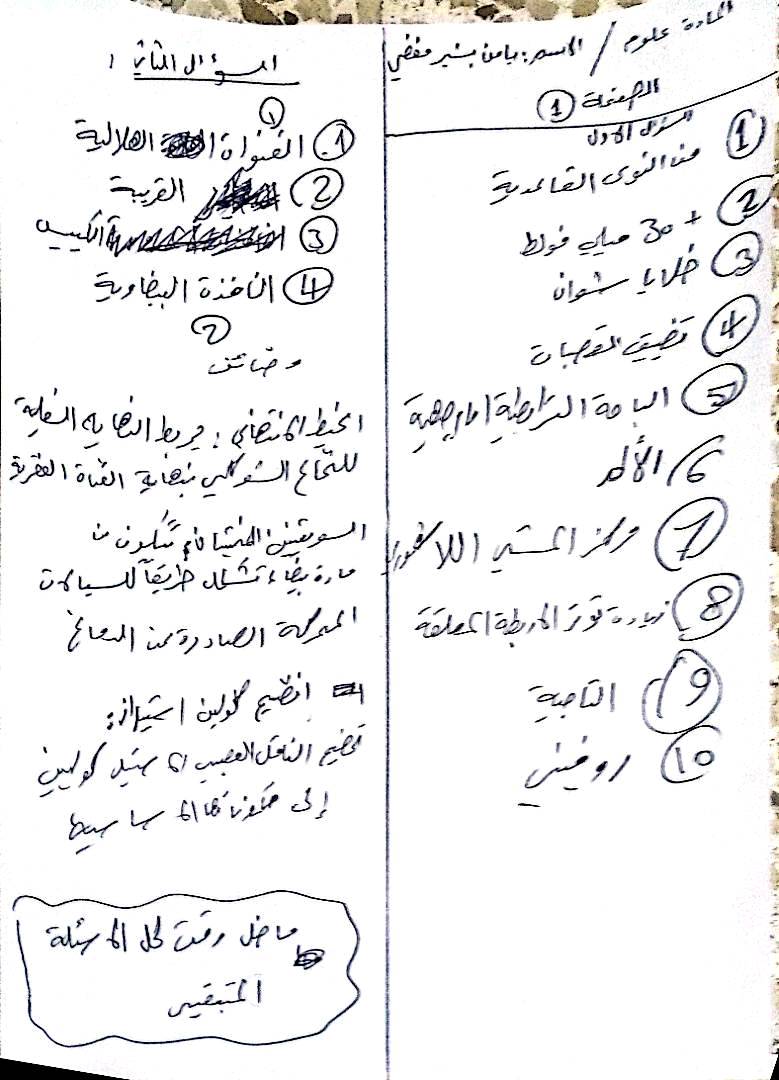 المادة علوم / الاسم: يامن بشير مفضي
الصفحة ①
السؤال الاول
① من النوى القاعدية
② + 30 ميلي فولط
③ خلايا شوان
④ تضيق القصبات
⑤ الباحة الترابطية الجبهية
6/ الألم
⑦ مركز المشي اللاشعوري
⑧ زيادة توتر الاربطة المعلقة
⑨ التاجية
⑩ روفيني
السؤال الثاني:
①
① القنواة الهلالية
② القريبة
③ الكييس
④ النافذة البيضاوية
②
وضائف
الخيط الانتهائي: يربط النهايه السفلية
للنخاع الشوكي بنهاية القناة الفقرية
السويقتين المخيتان تتكون من
مادة بيضاء تشكل طريقاً للسيالات
المحركة الصادرة عن الدماغ
انضيم كولين استيراز:
تحضيم الناقل العصبي الاستيل كولين
إلى مكوناتها الاساسية
ماضل وقت لحل الاسئلة
المتبقيى